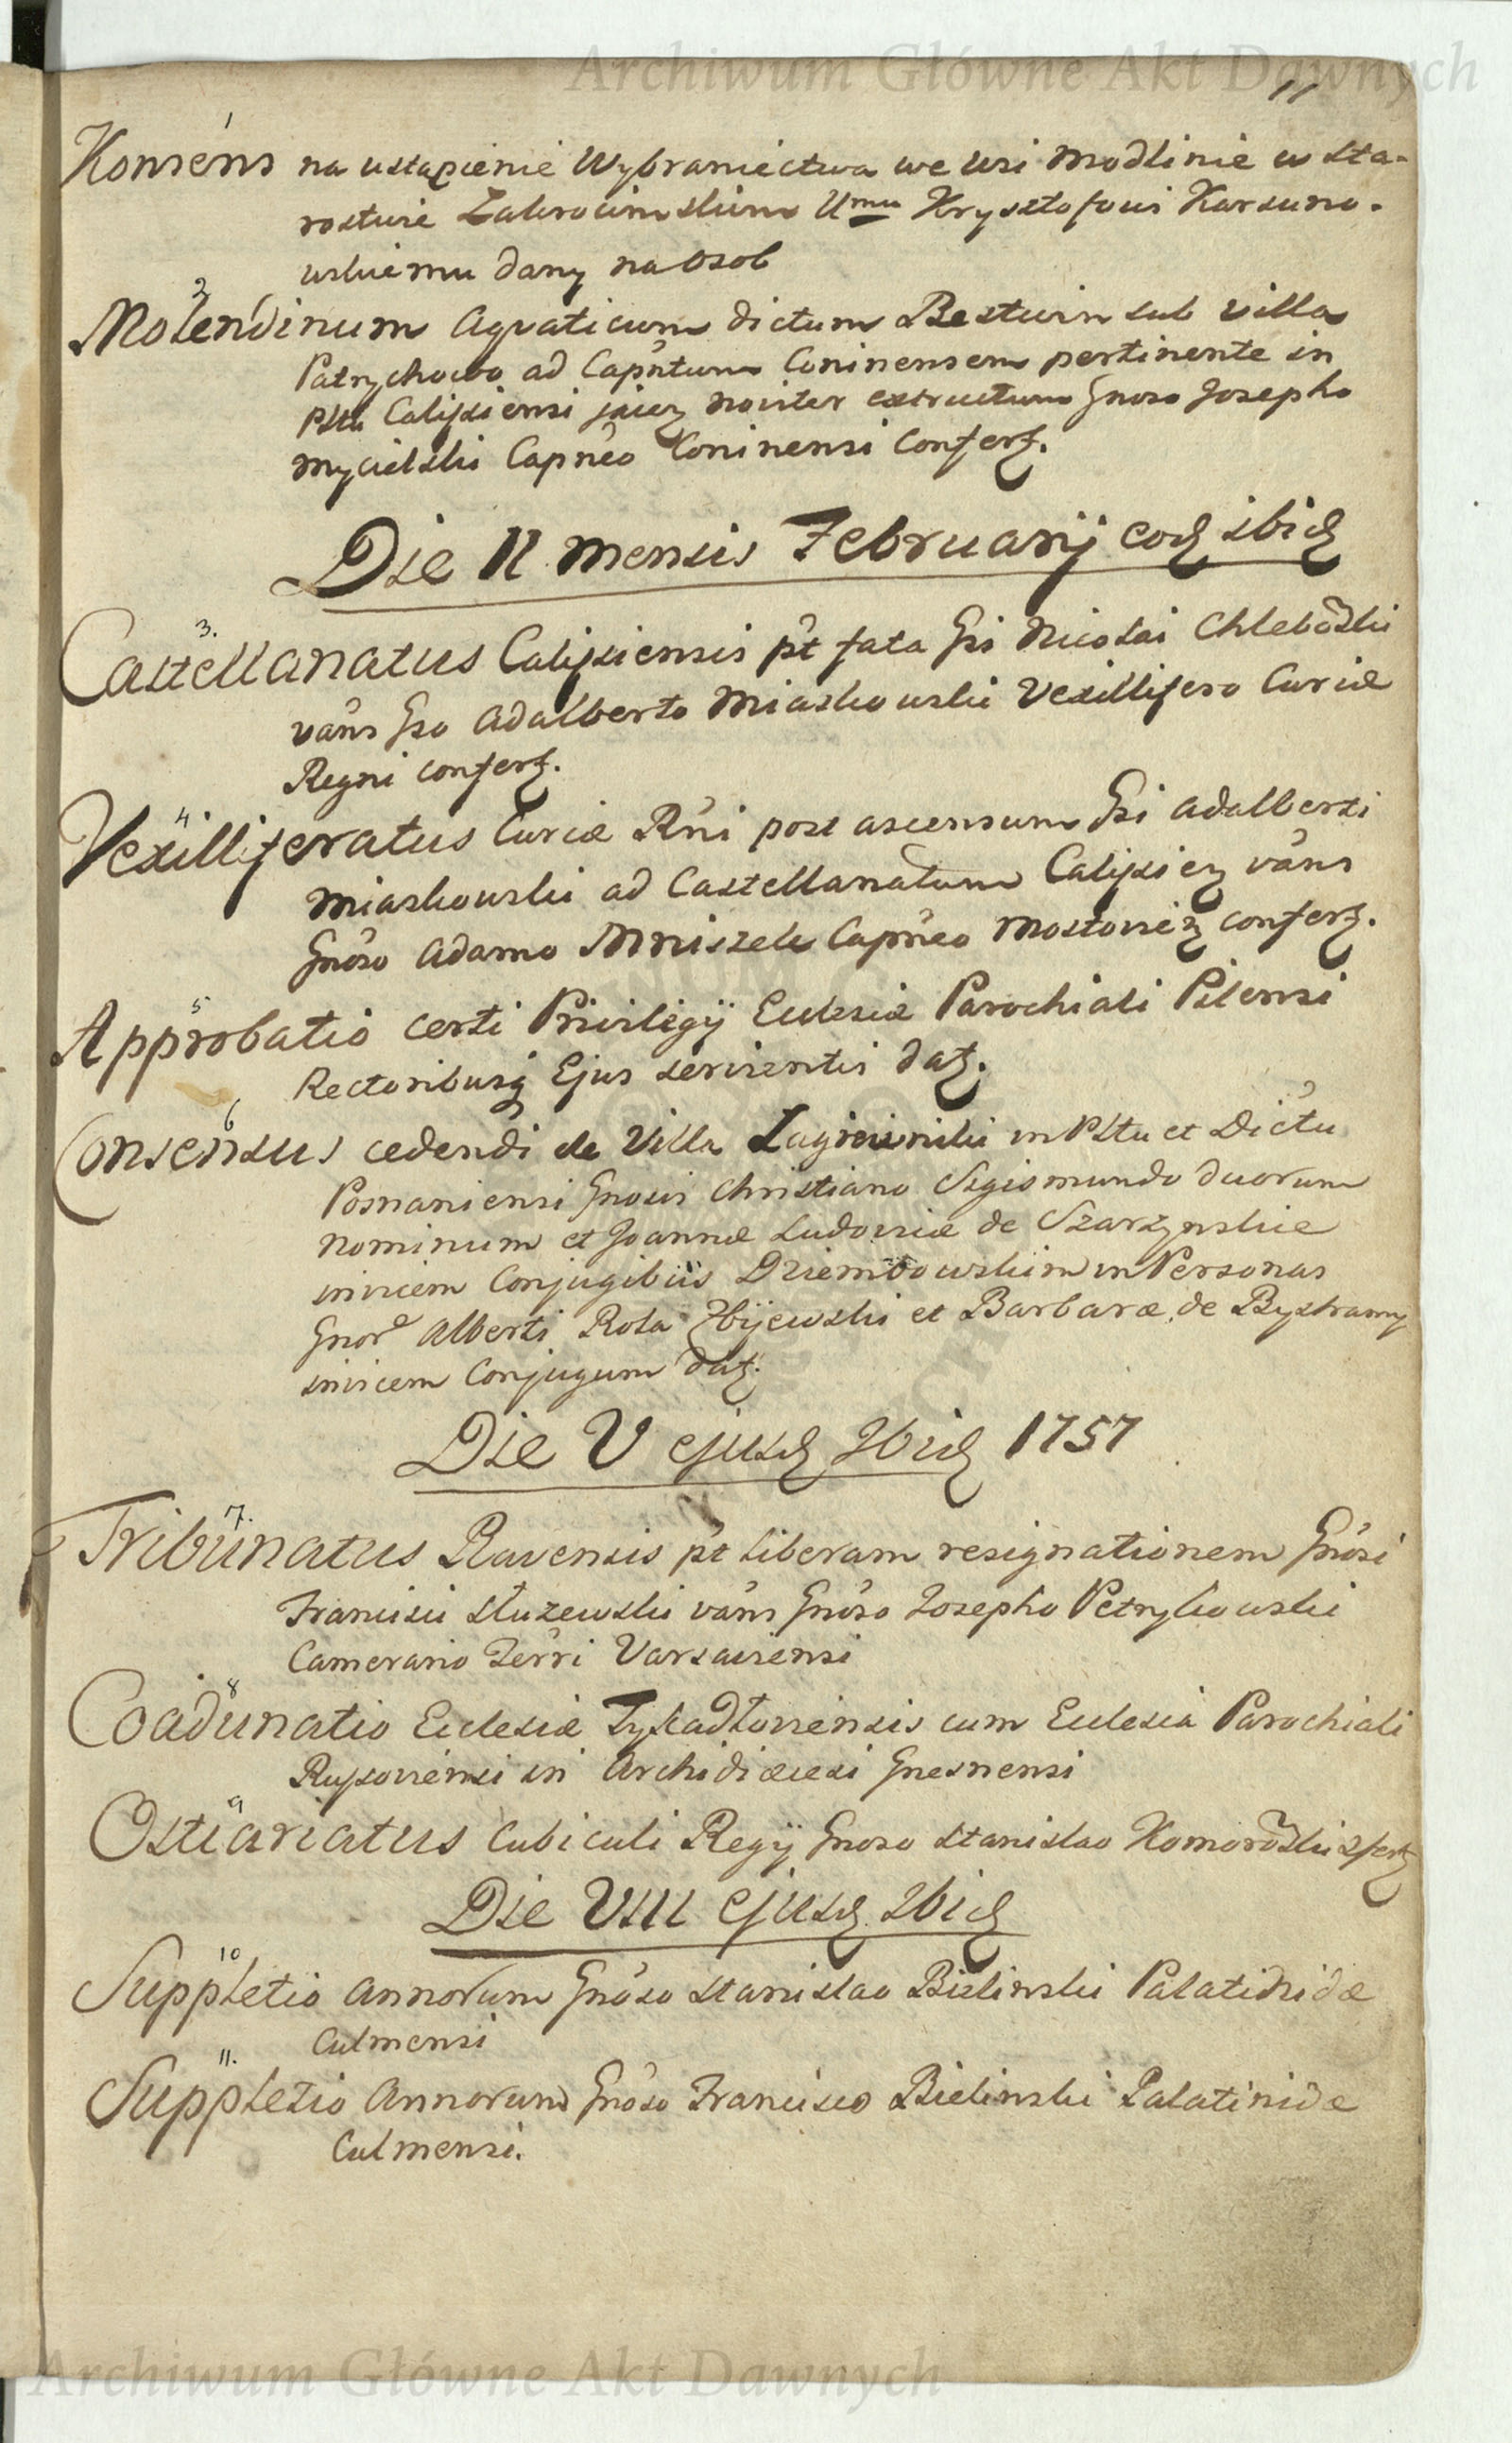 Archiwum Główne Akt Dawnych
11
1
Konsens na ustąpienie Wybraniectwa we wsi Modlinie w sta-
rostwie Zakroczimskim Umu Krysztofowi Karsuno-
wskiemu dany na osob
2
Molendinum aqvaticum dictum Bestwin sub villa
Patrychowo ad Capntum Coninensem pertinente in
Pttu Calissiensi jaicz noviter extructum Gnoso Josepho
Mycielski Capneo Coninensi Confert.
Die II mensis Februarij eod ibid
3.
Castellanatus Calissiensis pt fata Gsi Nicolai Chlebowski
vans Gso Adalberto Miaskowski Vexillifero Curiæ
Regni confert.
4
Vexilliferatus Curiæ Rni post ascensum Gsi Adalberti
Miaskowski ad Castellanatum Calissien vans
Gnoso Adamo Mniszek Capneo Mostovien confert.
5
Approbatio certi Privilegÿ Eclesiæ Parochiali Pilensi
Rectoribusq Ejus servientis dat.
6
Consensus cedendi de Villa in Pttu et Dictu
Posnaniensi Gnosis Christiano Sigismundo duorum
nominum et Joannæ Ludoviæ de Szarzynskie
invicem Conjugibus Dziembowskim in Personas
Gnor Alberti Rola Zbijewski et Barbaræ de Bystramy
invicem Conjugum dat.
Die V ejusd Ibid 1757
7.
Tribunatus Ravensis pt liberam resignationem Gnosi
Francisci Służewski vans Gnoso Josepho Petrykowski
Camerario Terri Varsaviensi
8
Coadunatio Eclesiæ cum Eclesia Parochiali
in Archidiæcesi Gnesnensi
9
Ostiariatus Cubiculi Regÿ Gnoso Stanislao Komorowski
Die VIII ejusd ibid
10
Suppletio annorum Gnoso Stanislao Bielinski Palatinidæ
Culmensi
11.
Suppletio Annorum Gnoso Francisco Bielinski Palatinidæ
Culmensi.
Archiwum Główne Akt Dawnych